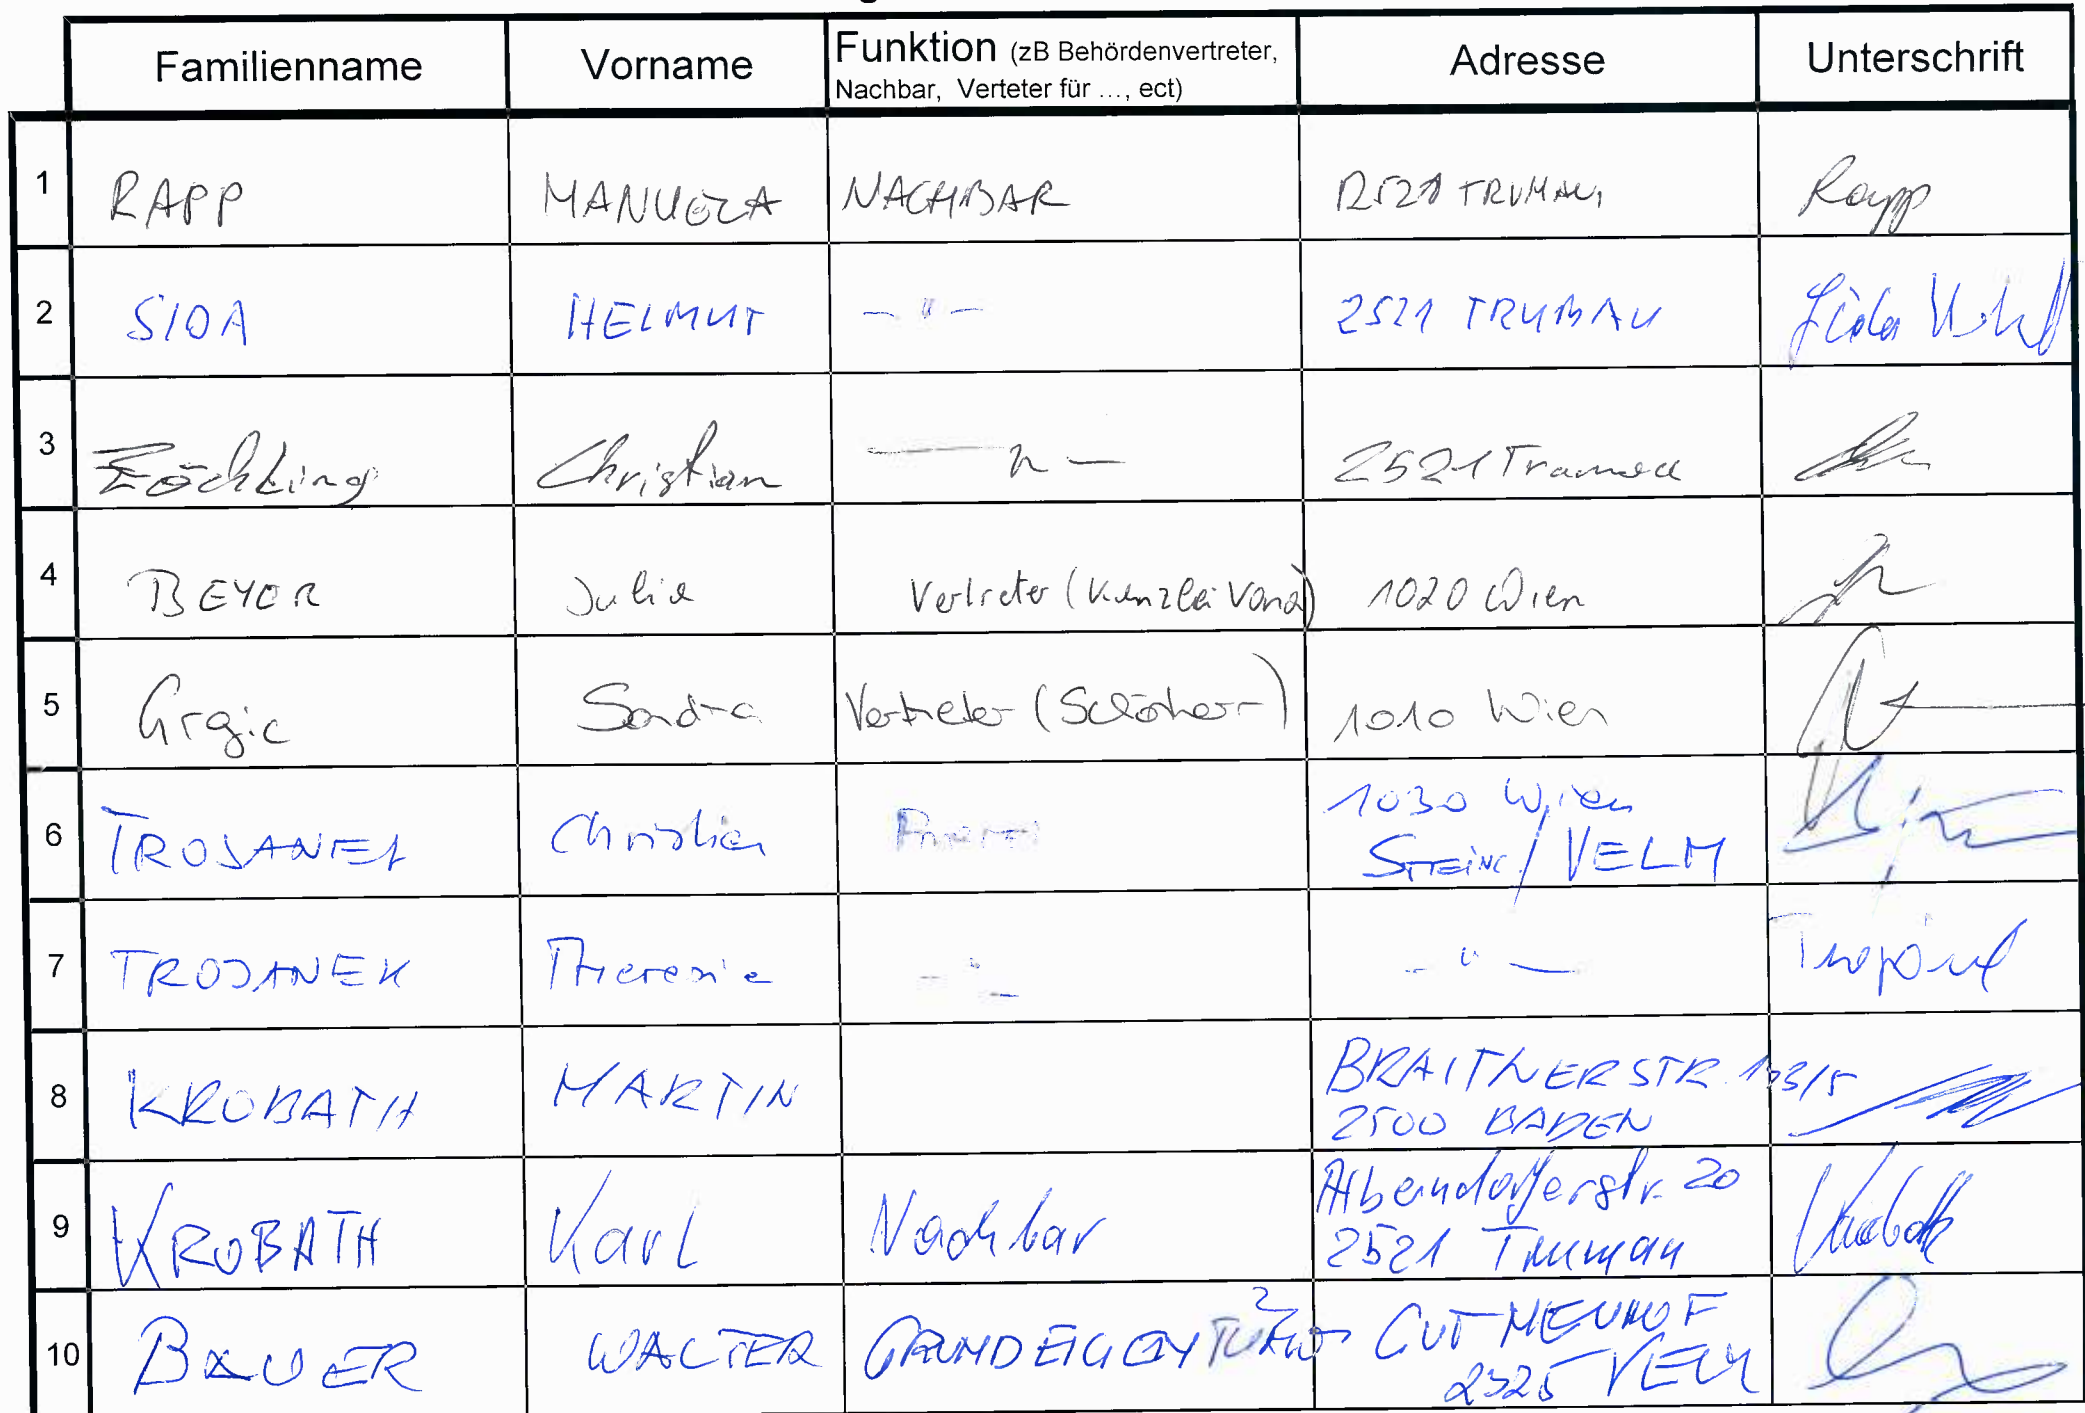 Familienname Vorname Funktion (zB Behördenvertreter, Nachbar, Verteter für ..., ect) Adresse Unterschrift
1 RAPP MANUELA NACHBAR 2521 TRUMAU Rapp
2 SIDA HELMUT - " - 2521 TRUMAU Sida
3 Zöchling Christian - " - 2521 Trumau
4 BEYER Julia Vertreter (Kanzlei Vana) 1020 Wien
5 Grgic Sandra Vertreter (Schönherr) 1010 Wien
6 TROJANEK Christian 1030 Wien
VELM
7 TROJANEK Theresia - " - - " - Trojanek
8 KROBATH MARTIN BRAITNERSTR. 103/5
2500 BADEN
9 KROBATH Karl Nachbar 20
2521 Trumau Krobath
10 BAUER WALTER GUT NEUHOF
2325 VELM